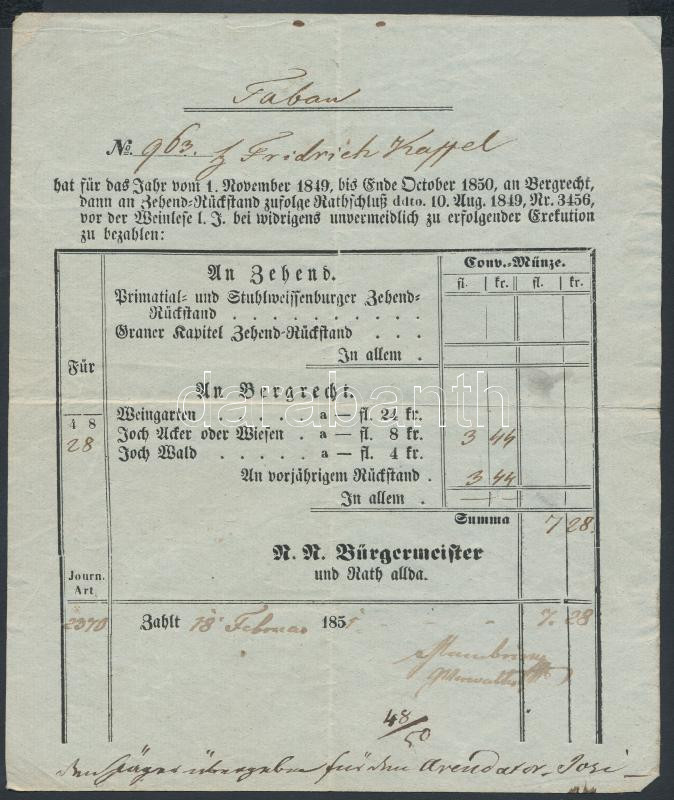 Taban
No. 963. Fridrich Kappel
hat für das Jahr vom 1. November 1849, bis Ende October 1850, an Bergrecht,
dann an Zehend-Rückstand zufolge Rathschluß ddto. 10. Aug. 1849, Nr. 3456,
vor der Weinlese l. J. bei widrigens unvermeidlich zu erfolgender Exekution
zu bezahlen:
An Zehend.
Conv.-Münze.
fl. kr. fl. kr.
Primatial- und Stuhlweissenburger Zehend-
Rückstand . . . . . . . . . .
Graner Kapitel Zehend-Rückstand . . .
In allem .
Für
An Bergrecht.
Weingarten . . . . . a — fl. 24 kr.
4 8
Joch Acker oder Wiesen . a — fl. 8 kr. 3 44
28
Joch Wald . . . . . a — fl. 4 kr.
An vorjährigem Rückstand . 3 44
In allem . — —
Summa 7 28.
N. N. Bürgermeister
und Rath allda.
Journ.
Art.
2370 Zahlt 18 Februar 1851 - - - 7. 28
Verwalter
48/50
übergeben für den Arendator
darabanth